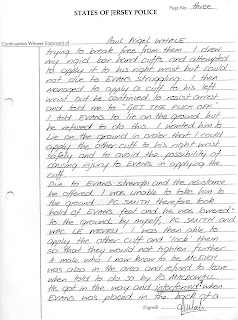 Page No. three
STATES OF JERSEY POLICE
Continuation Witness Statement of Paul Angel WHALE
trying to break free from them. I drew
my rigid bar hand cuffs and attempted
to apply it to his right wrist but could
not due to EVANS struggling. I then
managed to apply a cuff to his left
wrist but he continued to resist arrest
and told me to "GET THE FUCK OFF".
I told EVANS to lie on the ground but
he refused to do this. I wanted him to
lie on the ground in order that I could
apply the other cuff to his right wrist
safely and to avoid the possibility of
causing injury to EVANS in applying the
cuff.
Due to EVANS strength and the resistance
he offered I was unable to take him to
the ground. PC SMITH therefore took
hold of EVANS feet and he was lowered
to the ground by myself, PC SMITH and
WPC LE NEVEU. I was then able to
apply the other cuff and 'lock' them
so that they would not tighten further.
A male who I now know to be McEVOY
was also in the area and refused to leave
when told to do so by PS
He got in the way and interfered when
EVANS was placed in the back of a
Signed: